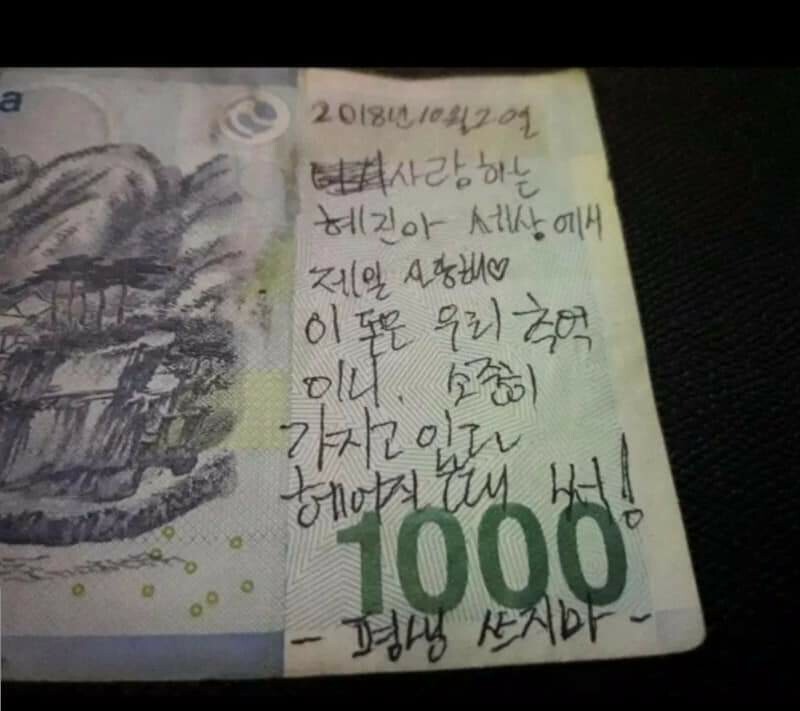 a
2018년10월20일
사랑하는
혜진아 세상에서
제일 사랑해♡
이 돈은 우리 추억
이니. 소중히
가지고 있다
헤어질 때 써!
1000
- 평생 쓰지마 -